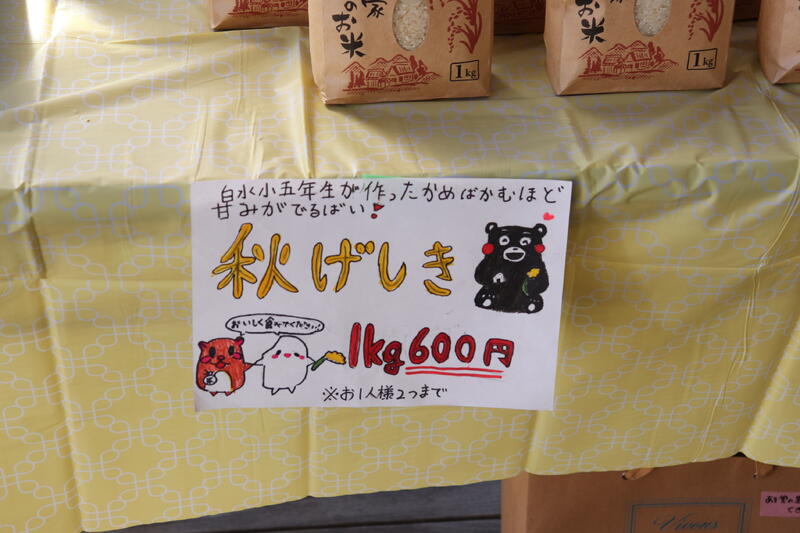 家
のお米
1kg
お米
1kg
白水小五年生が作ったかめばかむほど
甘みがでるばい!
秋げしき
おいしく食べてください!
1kg600円
※お1人様2つまで